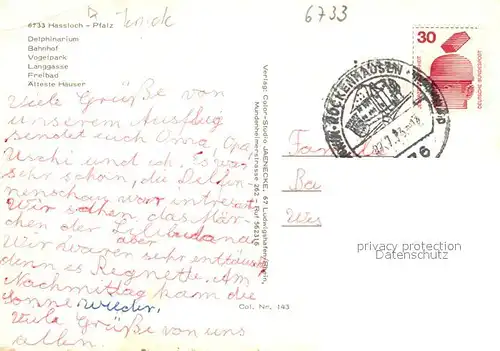 Knick
6733
6733 Hassloch - Pfalz
Delphinarium
Bahnhof
Vogelpark
Langgasse
Freibad
Älteste Häuser
Viele Grüße von
unserem Ausflug
sendet euch Oma, Opa,
Uschi und ich. Es war
sehr schön, die Delfin-
nenschau war intresant
Wir sahen das Mär-
chen der Liliputaner
aber
Wir waren sehr enttäuscht
denn es Regnette. Am
Nachmittag kam die
Sonne wieder.
Viele Grüße von uns
allen.
Verlag: Color-Studio JAENECKE, 67 Ludwigshafen/Rhein,
Mundenheimerstrasse 262 - Ruf 562316
Col. Nr. 143
30
DEUTSCHE BUNDESPOST
BOCKENHAUSEN
Fam
Ba
privacy protection
Datenschutz